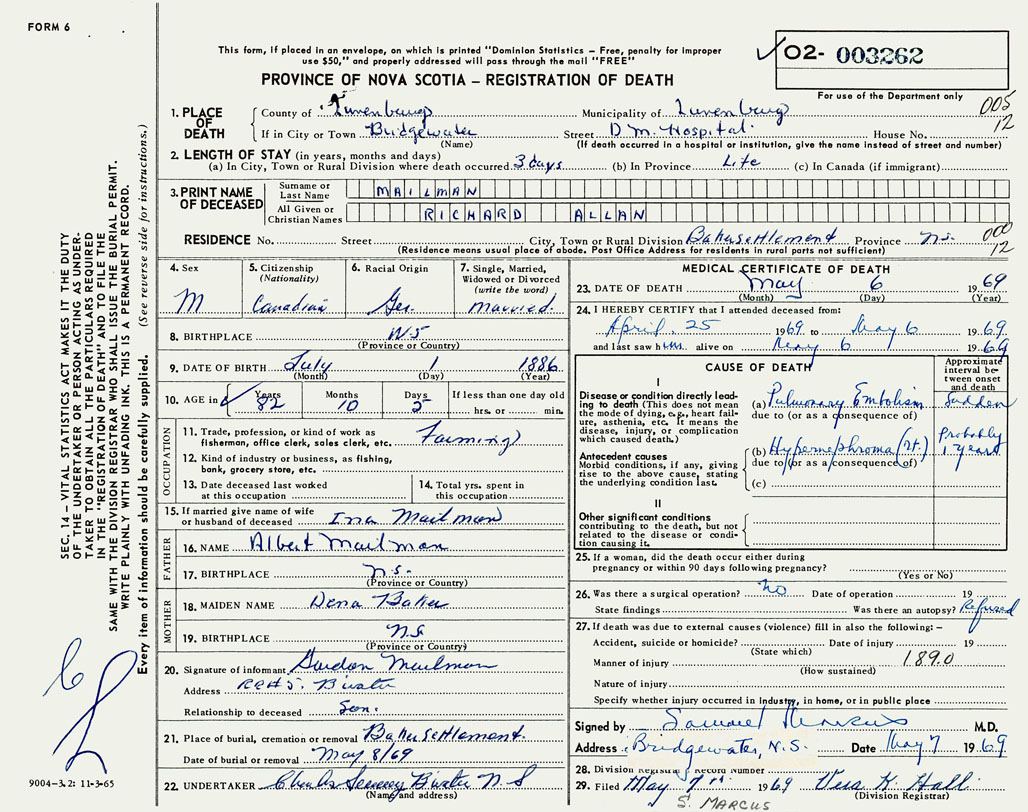 FORM 6
This form, if placed in an envelope, on which is printed "Dominion Statistics – Free, penalty for improper
use $50," and properly addressed will pass through the mail "FREE"
PROVINCE OF NOVA SCOTIA – REGISTRATION OF DEATH
O2- 003262
For use of the Department only
005
12
1. PLACE OF DEATH
County of Lunenburg Municipality of Lunenburg
If in City or Town Bridgewater Street D.M. Hospital House No.
(Name) (If death occurred in a hospital or institution, give the name instead of street and number)
2. LENGTH OF STAY (in years, months and days)
(a) In City, Town or Rural Division where death occurred 3 days (b) In Province Life (c) In Canada (if immigrant)
3. PRINT NAME OF DECEASED
Surname or Last Name MAILMAN
All Given or Christian Names RICHARD ALLAN
RESIDENCE No. Street City, Town or Rural Division Bakersettlement Province N.S. 000
12
(Residence means usual place of abode. Post Office Address for residents in rural parts not sufficient)
4. Sex
M
5. Citizenship
(Nationality)
Canadian
6. Racial Origin
Ger.
7. Single, Married,
Widowed or Divorced
(write the word)
Married.
8. BIRTHPLACE N.S
(Province or Country)
9. DATE OF BIRTH July 1 1886
(Month) (Day) (Year)
10. AGE in Years Months Days If less than one day old
82 10 5 hrs. or min.
OCCUPATION
11. Trade, profession, or kind of work as
fisherman, office clerk, sales clerk, etc. Farming
12. Kind of industry or business, as fishing,
bank, grocery store, etc.
13. Date deceased last worked
at this occupation
14. Total yrs. spent in
this occupation
15. If married give name of wife
or husband of deceased Ina Mailman
FATHER
16. NAME Albert Mailman
17. BIRTHPLACE N.S.
(Province or Country)
MOTHER
18. MAIDEN NAME Dena Baker
19. BIRTHPLACE N.S
(Province or Country)
20. Signature of informant Gordon Mailman
Address RR#5. B'water
Relationship to deceased Son.
21. Place of burial, cremation or removal Bakersettlement.
Date of burial or removal May 8/69
22. UNDERTAKER Charles B'water N S
(Name and address)
MEDICAL CERTIFICATE OF DEATH
23. DATE OF DEATH May 6 1969
(Month) (Day) (Year)
24. I HEREBY CERTIFY that I attended deceased from:
April 25 1969 to May 6 1969
and last saw him alive on May 6 1969
CAUSE OF DEATH
Approximate
interval be-
tween onset
and death
I
Disease or condition directly lead-
ing to death (This does not mean
the mode of dying, e.g., heart fail-
ure, asthenia, etc. It means the
disease, injury, or complication
which caused death.)
(a) Pulmonary Embolism Sudden
due to (or as a consequence of)
Antecedent causes
Morbid conditions, if any, giving
rise to the above cause, stating
the underlying condition last.
(b) Hypernephroma (rt.) Probably
1 year
due to (or as a consequence of)
(c)
II
Other significant conditions
contributing to the death, but not
related to the disease or condi-
tion causing it.
25. If a woman, did the death occur either during
pregnancy or within 90 days following pregnancy?
(Yes or No)
26. Was there a surgical operation? No Date of operation 19
State findings Was there an autopsy? Refused
27. If death was due to external causes (violence) fill in also the following: –
Accident, suicide or homicide? Date of injury 19
(State which)
Manner of injury 189.0
(How sustained)
Nature of injury
Specify whether injury occurred in industry, in home, or in public place
Signed by Samuel Marcus M.D.
Address Bridgewater, N.S. Date May 7 1969
28. Division Registrar's Record Number
29. Filed May 7 1969 Vera K Hall
(Division Registrar)
S. MARCUS
SEC. 14 – VITAL STATISTICS ACT MAKES IT THE DUTY
OF THE UNDERTAKER OR PERSON ACTING AS UNDER-
TAKER TO OBTAIN ALL THE PARTICULARS REQUIRED
IN THE "REGISTRATION OF DEATH" AND TO FILE THE
SAME WITH THE DIVISION REGISTRAR WHO SHALL ISSUE THE BURIAL PERMIT.
WRITE PLAINLY WITH UNFADING INK. THIS IS A PERMANENT RECORD.
Every item of information should be carefully supplied. (See reverse side for instructions.)
9004-3.2: 11-3-65